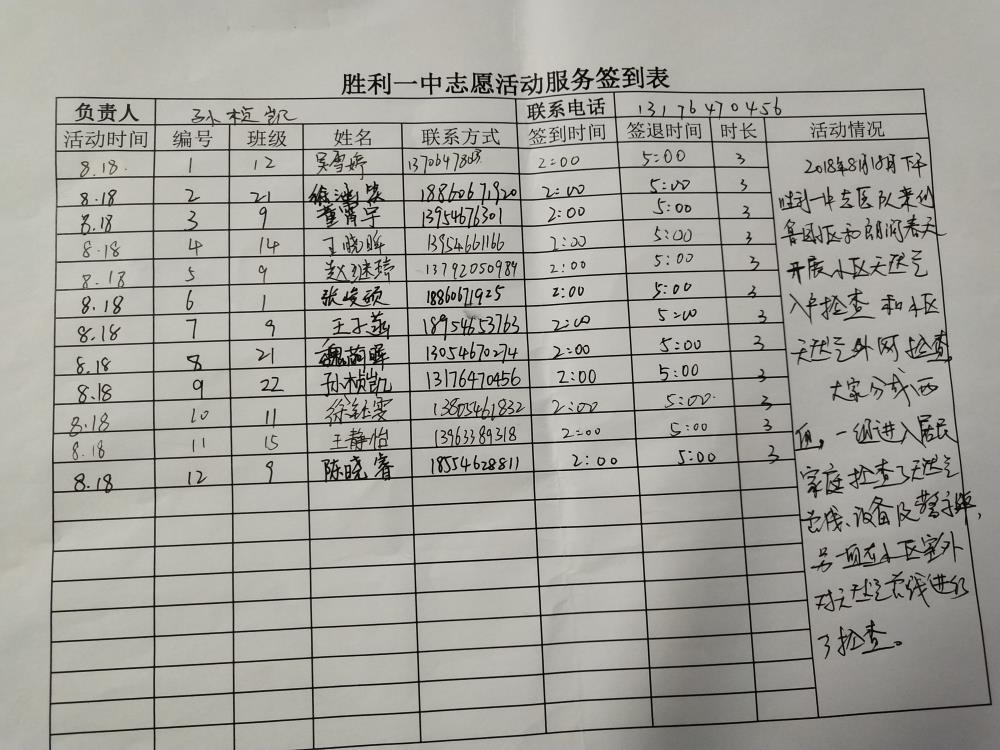 胜利一中志愿活动服务签到表
负责人 孙桢凯 联系电话 13176470456
活动时间 编号 班级 姓名 联系方式 签到时间 签退时间 时长 活动情况
8.18. 1 12 吴雪婷 2:00 5:00 3
8.18 2 21 徐 18860671920 2:00 5:00 3
8.18 3 9 董霄宇 13954676301 2:00 5:00 3
8.18 4 14 王晓晖 13954661166 2:00 5:00 3
8.18 5 9 赵 13792050989 2:00 5:00 3
8.18 6 1 张峻硕 18860671925 2:00 5:00 3
8.18 7 9 王子菡 18954653763 2:00 5:00 3
8.18 8 21 魏 13054670274 2:00 5:00 3
8.18 9 22 孙桢凯 13176470456 2:00 5:00 3
8.18 10 11 徐钰雯 13805461832 2:00 5:00. 3
8.18 11 15 王静怡 13963389318 2:00 5:00 3
8.18 12 9 陈晓睿 18554628811 2:00 5:00 3
2018年8月18日下午
胜利一中志愿队来到
小区和 春天
开展小区天然气
入户检查 和小区
天然气外网检查,
大家分成两
组, 一组进入居民
家庭检查了天然气
管线、设备及
另一项在小区室外
对天然气管线进行
了检查。